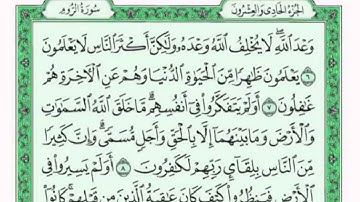 الجزء الحادى والعشرون
سورة الروم
وَعْدَ ٱللَّهِ لَا يُخْلِفُ ٱللَّهُ وَعْدَهُۥ وَلَٰكِنَّ أَكْثَرَ ٱلنَّاسِ لَا يَعْلَمُونَ
٦ يَعْلَمُونَ ظَٰهِرًا مِّنَ ٱلْحَيَوٰةِ ٱلدُّنْيَا وَهُمْ عَنِ ٱلْءَاخِرَةِ هُمْ
غَٰفِلُونَ ٧ أَوَلَمْ يَتَفَكَّرُوا۟ فِىٓ أَنفُسِهِم مَّا خَلَقَ ٱللَّهُ ٱلسَّمَٰوَٰتِ
وَٱلْأَرْضَ وَمَا بَيْنَهُمَآ إِلَّا بِٱلْحَقِّ وَأَجَلٍ مُّسَمًّى وَإِنَّ كَثِيرًا
مِّنَ ٱلنَّاسِ بِلِقَآئِ رَبِّهِمْ لَكَٰفِرُونَ ٨ أَوَلَمْ يَسِيرُوا۟ فِى
ٱلْأَرْضِ فَيَنظُرُوا۟ كَيْفَ كَانَ عَٰقِبَةُ ٱلَّذِينَ مِن قَبْلِهِمْ كَانُوٓا۟